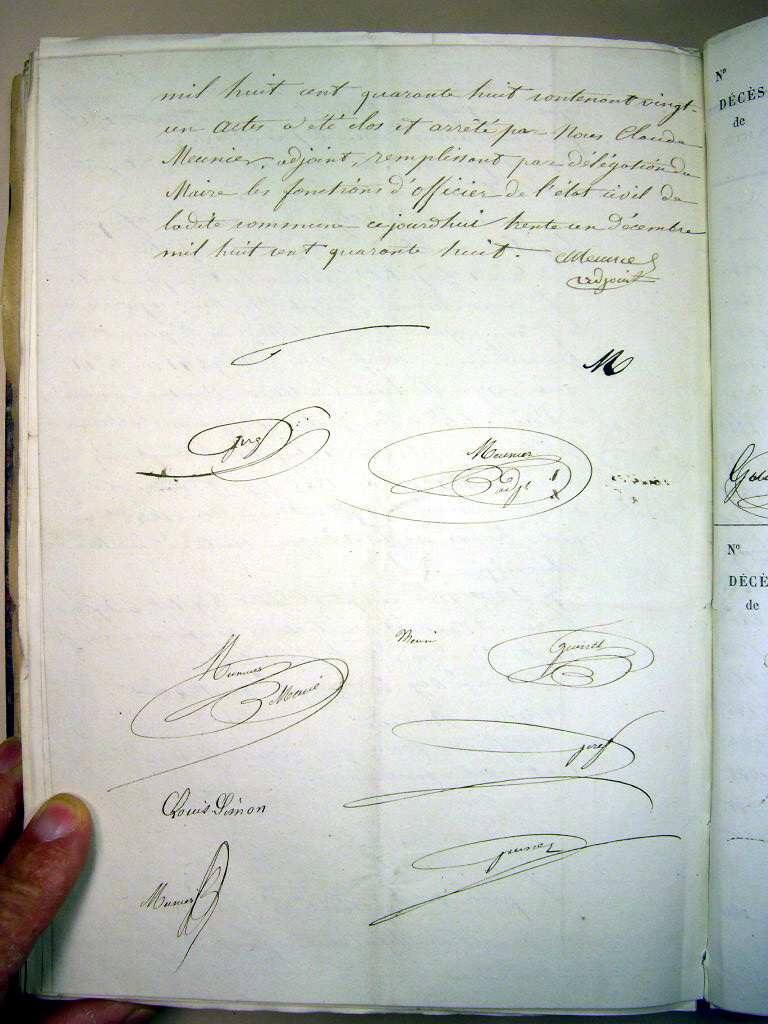 mil huit cent quarante huit contenant vingt-
un actes a été clos et arrêté par Nous Claude
Meunier, adjoint, remplissant par délégation du
Maire les fonctions d'officier de l'état civil de
ladite commune cejourdhui trente un Décembre
mil huit cent quarante huit. Meunier
adjoint
M
Meunier
adjt
Meunier
Louis Simon
Meunier
N°
DÉCÈS
de
N°
DÉCÈ
de